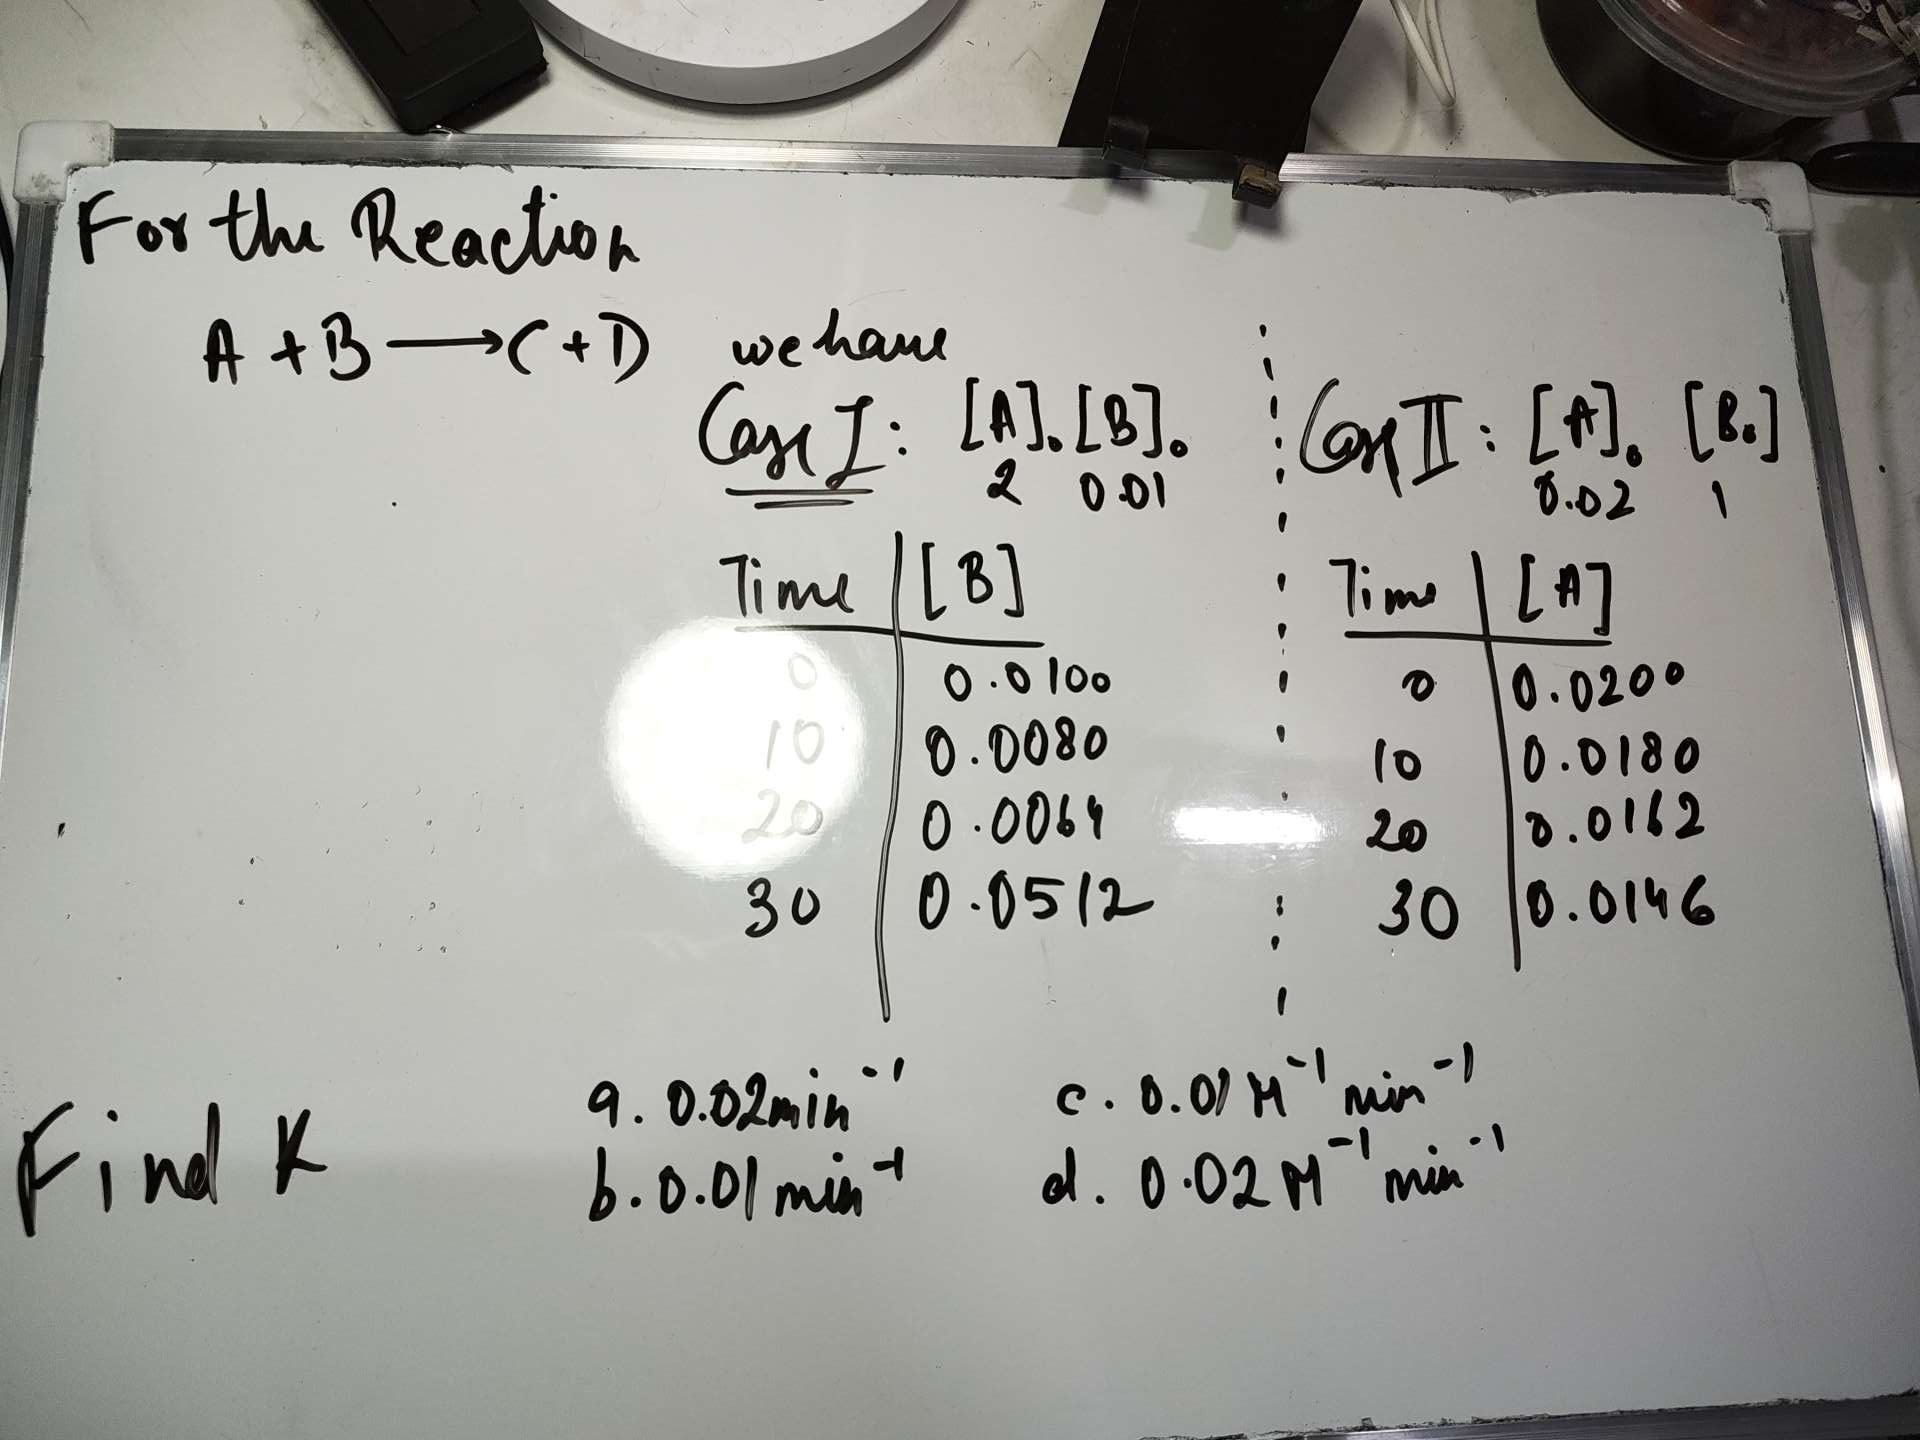 For the Reaction
A + B ⟶ C + D we have
Case I: [A]₀ [B]₀
2 0.01
Time [B]
0 0.0100
10 0.0080
20 0.0064
30 0.0512
Case II: [A]₀ [B₀]
0.02 1
Time [A]
0 0.0200
10 0.0180
20 0.0162
30 0.0146
Find K
a. 0.02 min⁻¹
b. 0.01 min⁻¹
c. 0.01 M⁻¹ min⁻¹
d. 0.02 M⁻¹ min⁻¹